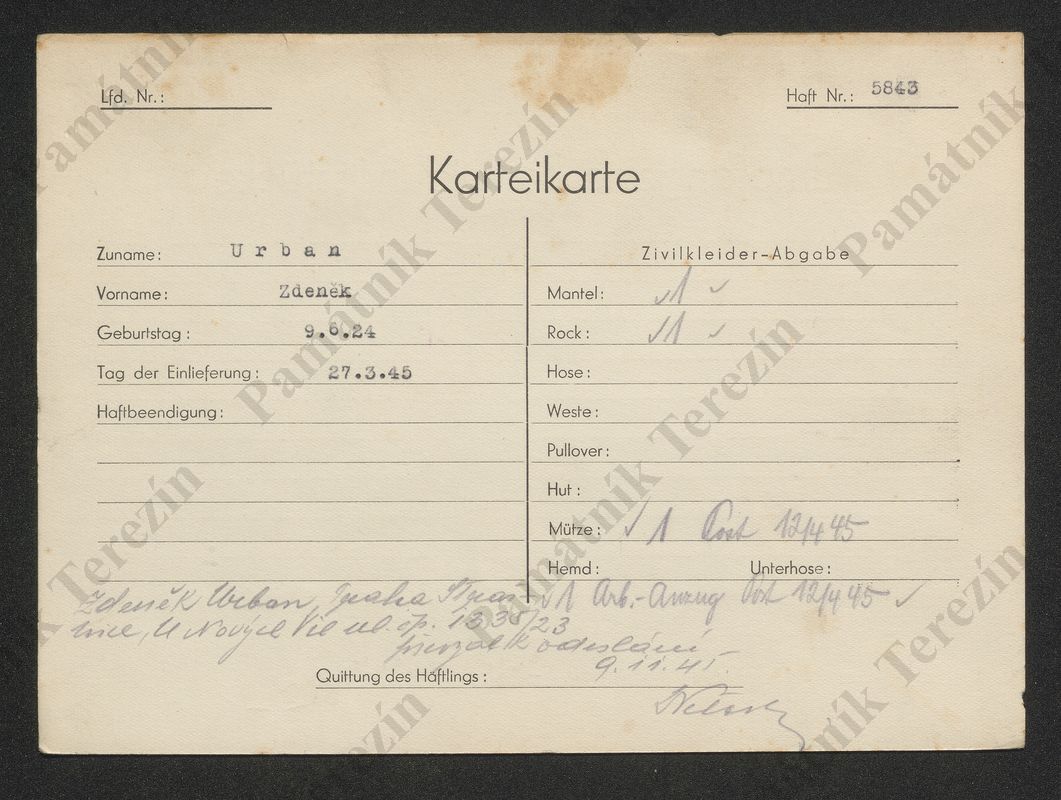 Lfd. Nr.:
Haft Nr.: 5843
Karteikarte
Zuname: Urban
Vorname: Zdeněk
Geburtstag: 9.6.24
Tag der Einlieferung: 27.3.45
Haftbeendigung:
Zivilkleider-Abgabe
Mantel: √1 √
Rock: √1 √
Hose:
Weste:
Pullover:
Hut:
Mütze: √ 1 Post 12/4 45
Hemd: Unterhose:
√1 Arb.-Anzug Post 12/4 45 √
Zdeněk Urban, Praha
U Nových Vil ul. čp. 1335/23
převzal k odeslání
9.11.45.
Quittung des Häftlings:
Památník Terezín
Památník Terezín
Památník Terezín
Památník Terezín